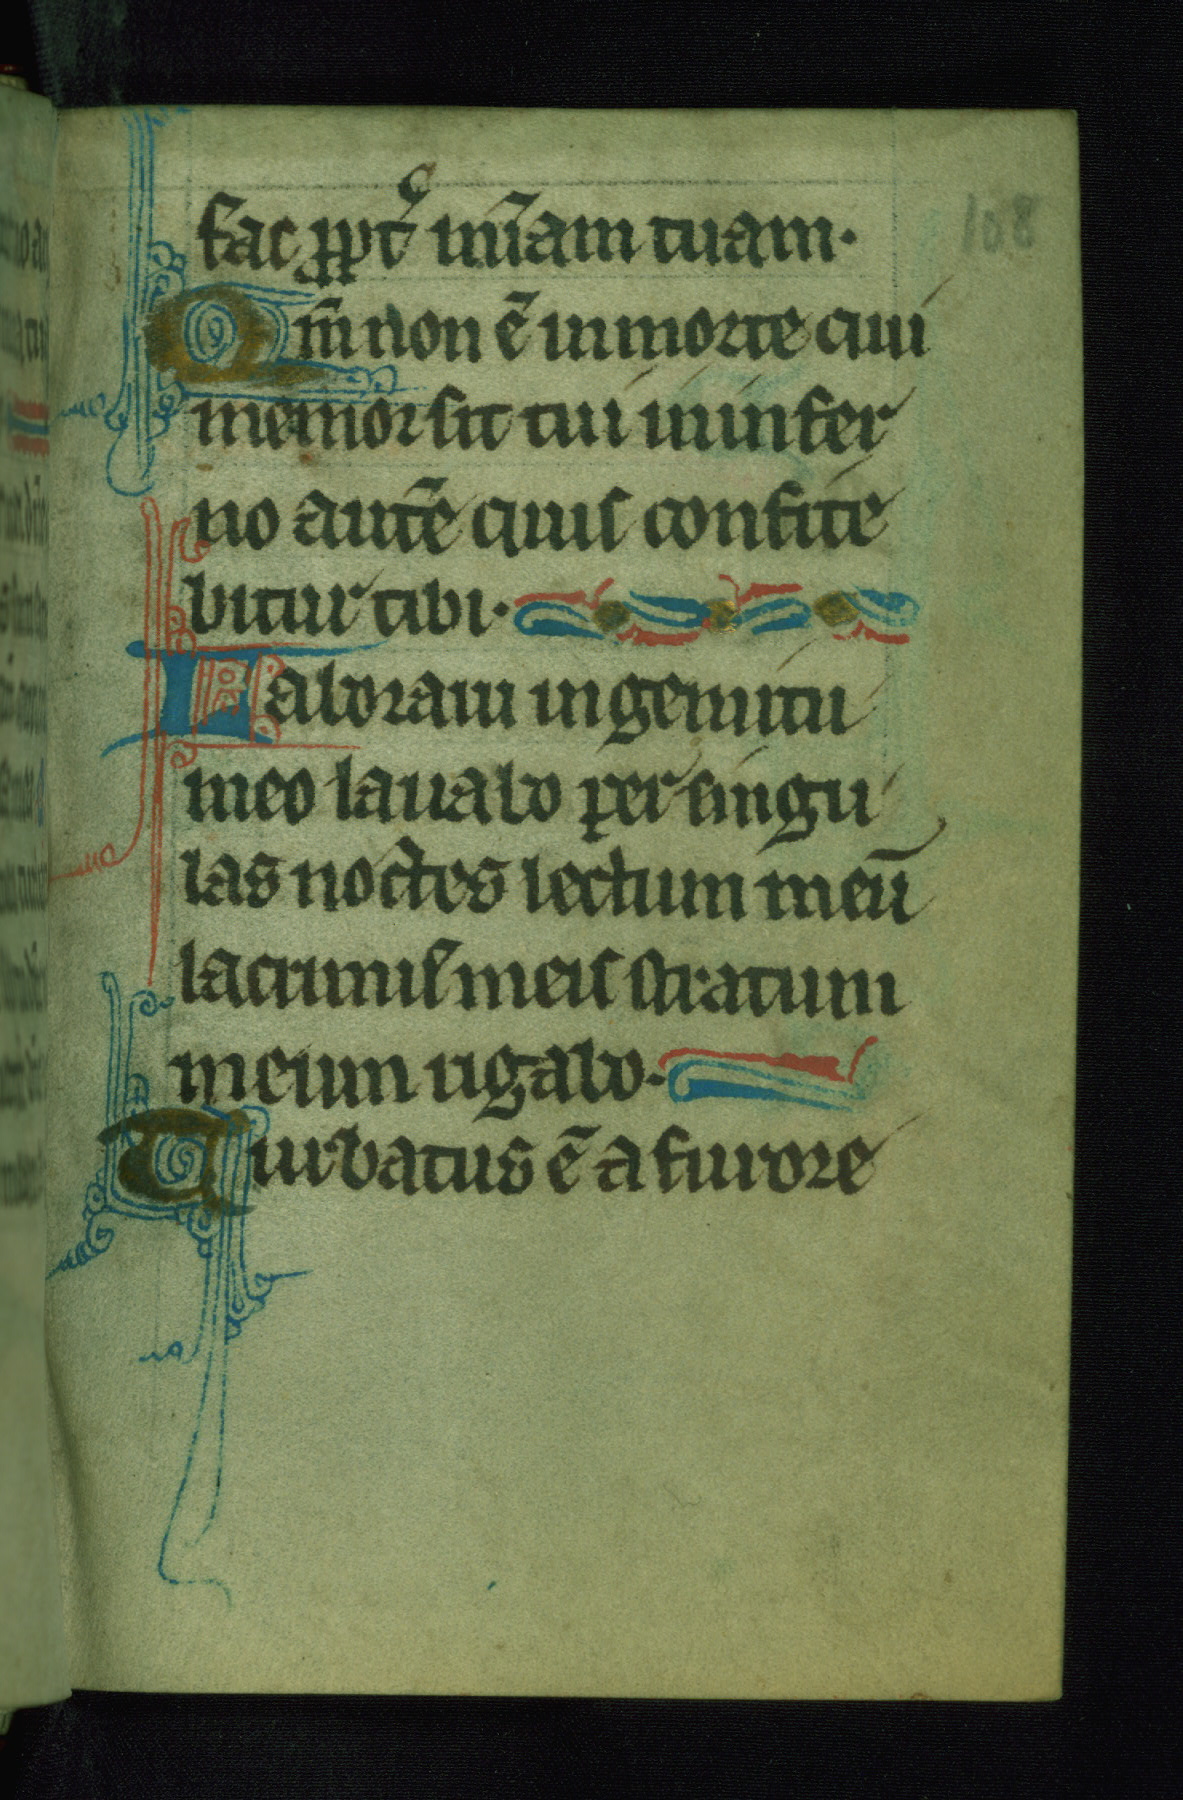 108
fac ꝓpt᷒ mı̃am tuam·
Qm̃ non ẽ in morte q̇ui
memor sit tui in infer
no autẽ quis confite
bitur tibi·
Laboraui in gemitu
meo lauabo per singu
las noctes lectum meũ
lacrimis meis stratum
meum rigabo·
Turbatus ẽ a furore